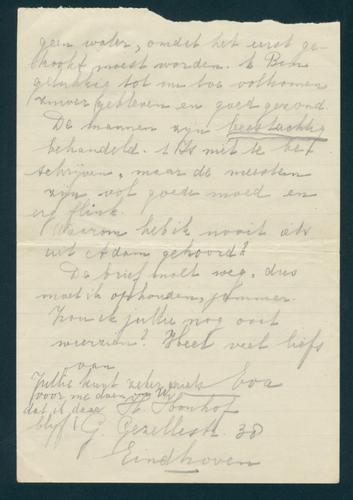 geen water, omdat het eerst ge-
kookt moest worden. 't Is
gelukkig tot nu toe volkomen
zuiver gebleven en goed gezond.
De mannen zijn beestachtig
behandeld. 't Is niet te be-
schrijven, maar de meesten
zijn vol goede moed en
erg flink.
Waarom heb ik nooit iets
uit Adam gehoord?
De brief moet weg, dus
moet ik ophouden, jammer.
Zou ik jullie nog ooit
weerzien? Heel veel liefs
van
Jullie kunt zeker niets Eva
voor me doen
dat ik daar St. Bonhof
blijf! G. Gezellestr. 38
Eindhoven